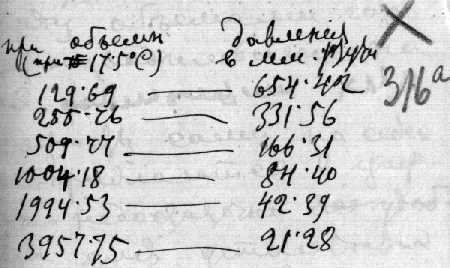 при объемы давления
(при t=17·5°C) в мм.
129·69 — 654·42
255·76 — 331·56
509·77 — 166·31
1004·18 — 84·40
1994·53 — 42·39
3957·75 — 21·28
316ᵃ